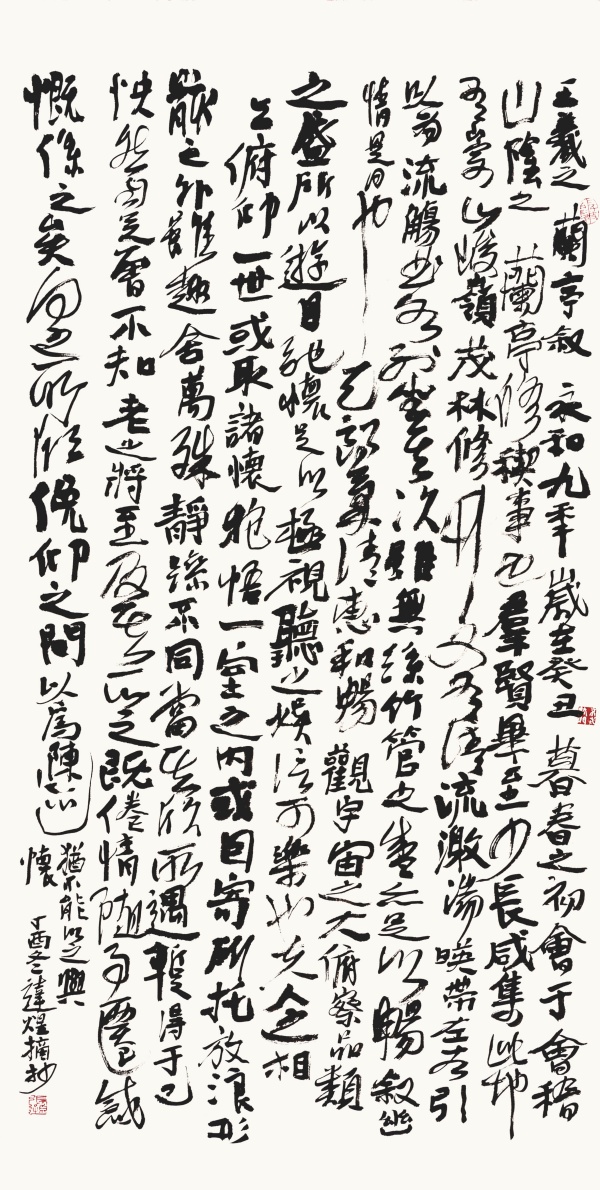 王羲之蘭亭叙 永和九年歲在癸丑暮春之初會于會稽
山陰之蘭亭修稧事也羣賢畢至少長咸集此地
有崇山峻嶺茂林修竹又有清流激湍暎帶左右引
以為流觴曲水列坐其次雖無絲竹管之盛亦足以暢叙幽
情是日也天朗氣清惠和暢觀宇宙之大俯察品類
之盛所以遊目騁懷足以極視聽之娛信可樂也夫人之相
與俯仰一世或取諸懷抱悟一室之內或因寄所托放浪形
骸之外雖趣舍萬殊靜躁不同當其欣所遇暫得于己
怏然自足曾不知老之將至及其所之既倦情隨事遷感
慨係之矣向之所欣俛仰之間以為陳迹
猶不能以之興
懷
丁酉冬達煌摘抄